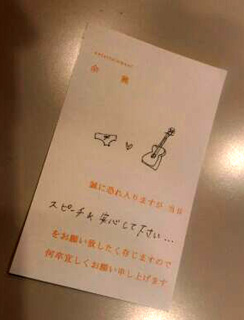 余興
誠に恐れ入りますが 当日
スピーチは 安心して下さい…
をお願い致したく存じますので
何卒宜しくお願い申し上げます